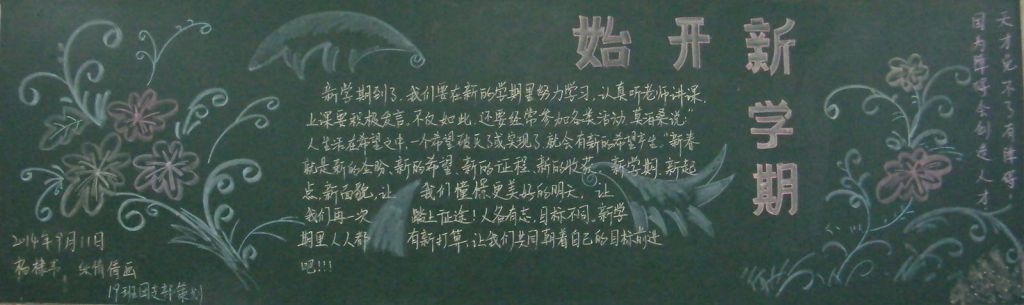 新学期
开
始
天才免不了有障碍，
因为障碍会创造人才
新学期到了，我们要在新的学期里努力学习，认真听老师讲课，
上课要积极发言，不仅如此，还要经常参加各类活动，莫泊桑说：“
人生活在希望之中，一个希望破灭了或实现了，就会有新的希望产生。”新春
就是新的企盼、新的希望、新的征程、新的收获。新学期，新起
点，新面貌，让 我们憧憬更美好的明天， 让
我们再一次 踏上征途！人各有志，目标不同，新学
期里人人都 有新打算，让我们共同朝着自己的目标前进
吧！！！
2014年9月11日
19班